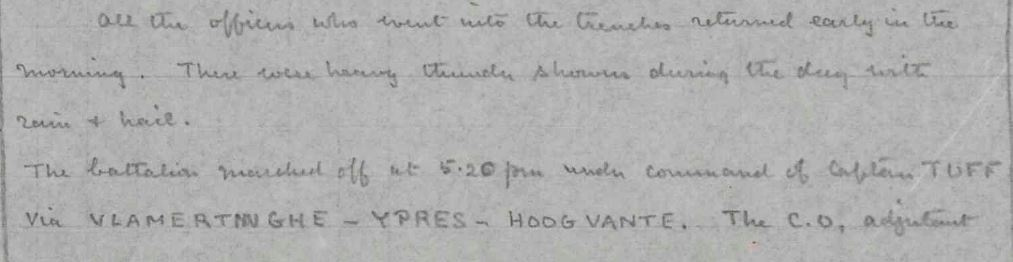 All the officers who went into the trenches returned early in the
morning. There were heavy thunder showers during the day with
rain + hail.
The battalion marched off at 5.20 pm under command of Captain TUFF
Via VLAMERTINGHE - YPRES - HOOGVANTE. The C.O, adjutant